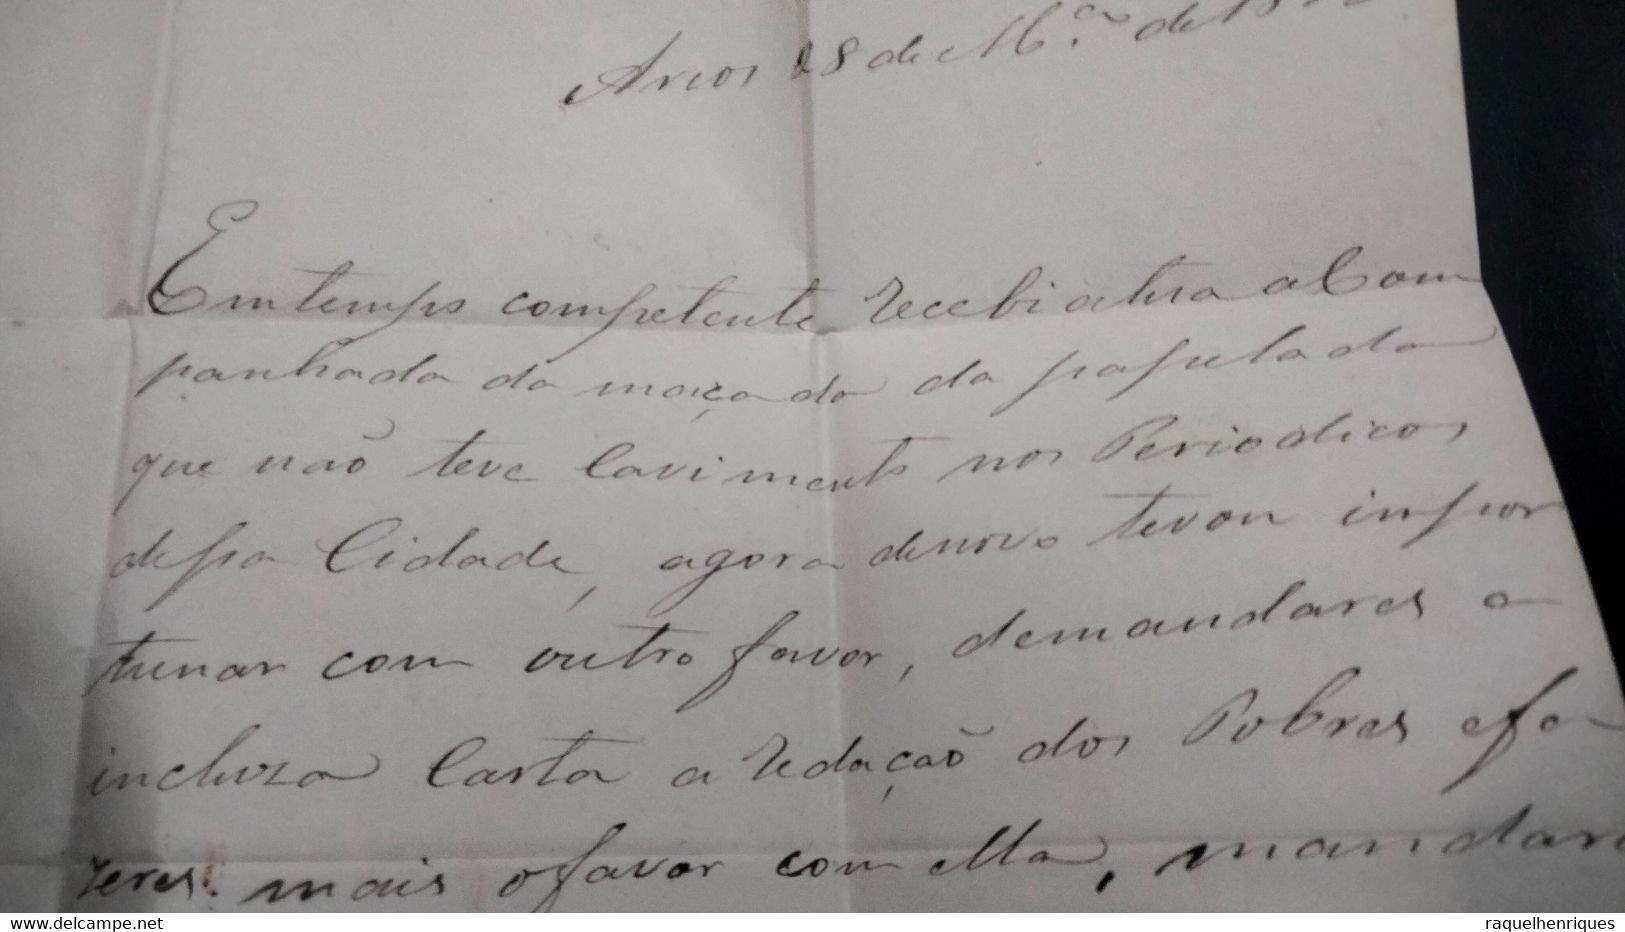 Arcos 28 de M.ço de 18
Em tempo competente recebi a tua a Com
panhada da maçada da papelada
que não teve Cavimento nos Periodicos
dessa Cidade, agora denovo te vou impor
tunar com outro favor, de mandares a
incluza Carta a redação dos Pobres e fa
zeres mais o favor com ella, mandar
www.delcampe.net
raquelhenriques